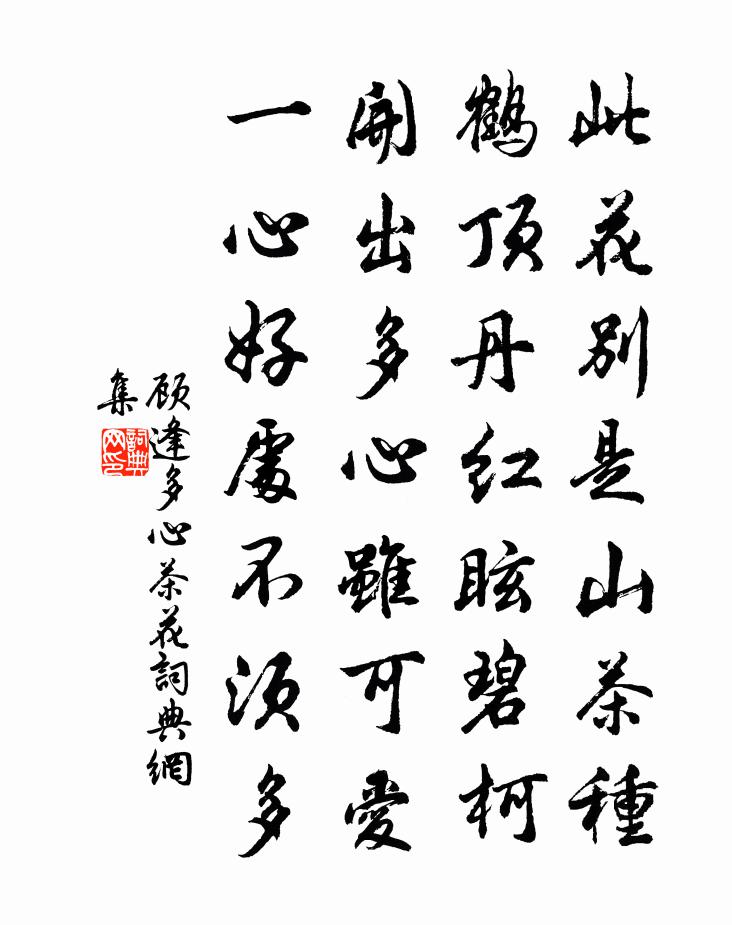 此花別是山茶種
鶴頂丹红眩碧柯
開出多心雖可愛
一心好處不須多
顾逢多心茶花詞典網
集
詞典
网印